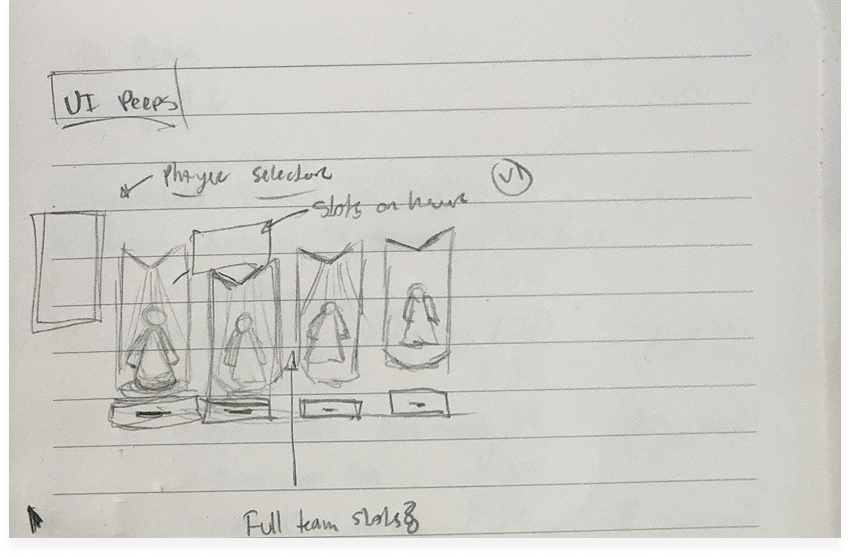 UI Peeps
Player selector
V1
Slots on hover
Full team slots